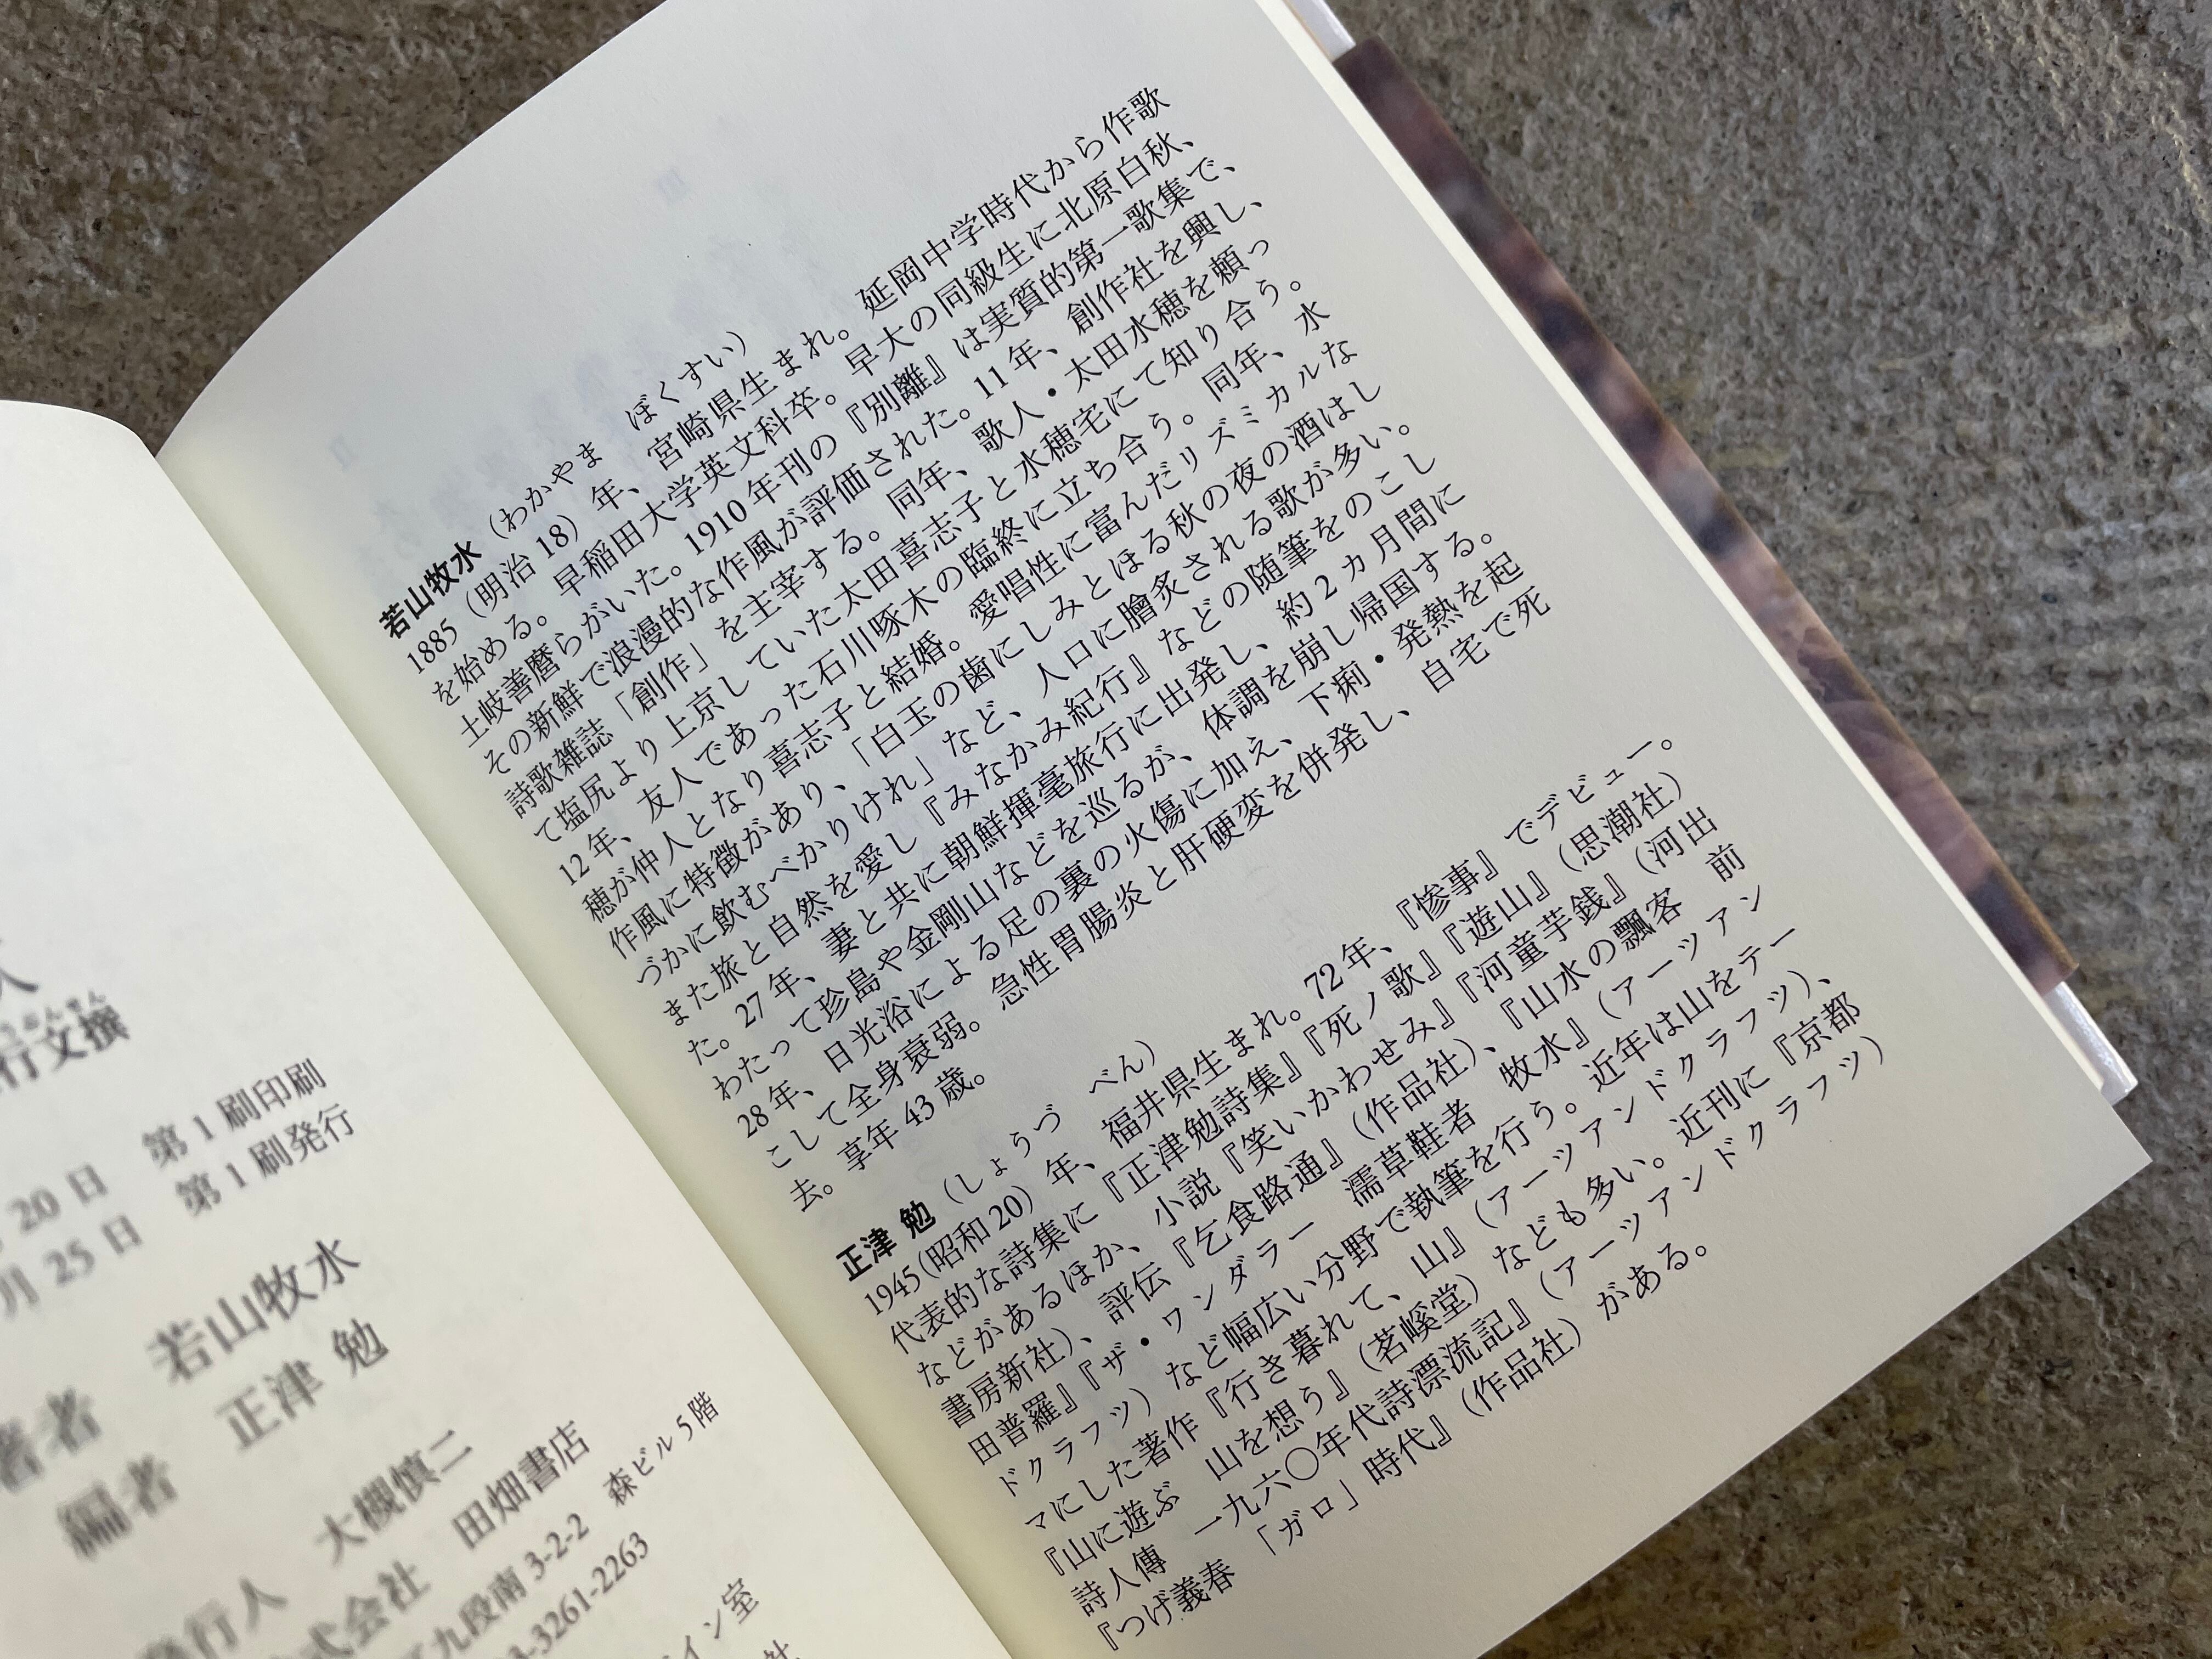 若山牧水（わかやま　ぼくすい）
1885（明治18）年、宮崎県生まれ。延岡中学時代から作歌
を始める。早稲田大学英文科卒。早大の同級生に北原白秋、
土岐善麿らがいた。1910年刊の『別離』は実質的第一歌集で、
その新鮮で浪漫的な作風が評価された。11年、創作社を興し、
詩歌雑誌「創作」を主宰する。同年、歌人・太田水穂を頼っ
て塩尻より上京していた太田喜志子と水穂宅にて知り合う。
12年、友人であった石川啄木の臨終に立ち合う。同年、水
穂が仲人となり喜志子と結婚。愛唱性に富んだリズミカルな
作風に特徴があり、「白玉の歯にしみとほる秋の夜の酒はし
づかに飲むべかりけれ」など、人口に膾炙される歌が多い。
また旅と自然を愛し『みなかみ紀行』などの随筆をのこし
た。27年、妻と共に朝鮮揮毫旅行に出発し、約2カ月間に
わたって珍島や金剛山などを巡るが、体調を崩し帰国する。
28年、日光浴による足の裏の火傷に加え、下痢・発熱を起
こして全身衰弱。急性胃腸炎と肝硬変を併発し、自宅で死
去。享年43歳。
正津 勉（しょうづ　べん）
1945（昭和20）年、福井県生まれ。72年、『惨事』でデビュー。
代表的な詩集に『正津勉詩集』『死ノ歌』『遊山』（思潮社）
などがあるほか、小説『笑いかわせみ』『河童芋銭』（河出
書房新社）、評伝『乞食路通』（作品社）、『山水の飄客　前
田普羅』『ザ・ワンダラー　濡草鞋者　牧水』（アーツアン
ドクラフツ）など幅広い分野で執筆を行う。近年は山をテー
マにした著作『行き暮れて、山』（アーツアンドクラフツ）、
『山に遊ぶ　山を想う』（茗溪堂）なども多い。近刊に『京都
詩人傳　一九六〇年代詩漂流記』（アーツアンドクラフツ）
『つげ義春　「ガロ」時代』（作品社）がある。
人
行文撰
20日　第1刷印刷
月25日　第1刷発行
著者　若山牧水
編者　正津 勉
発行人　大槻慎二
式会社　田畑書店
九段南3-2-2　森ビル5階
3-3261-2263
イン室
社